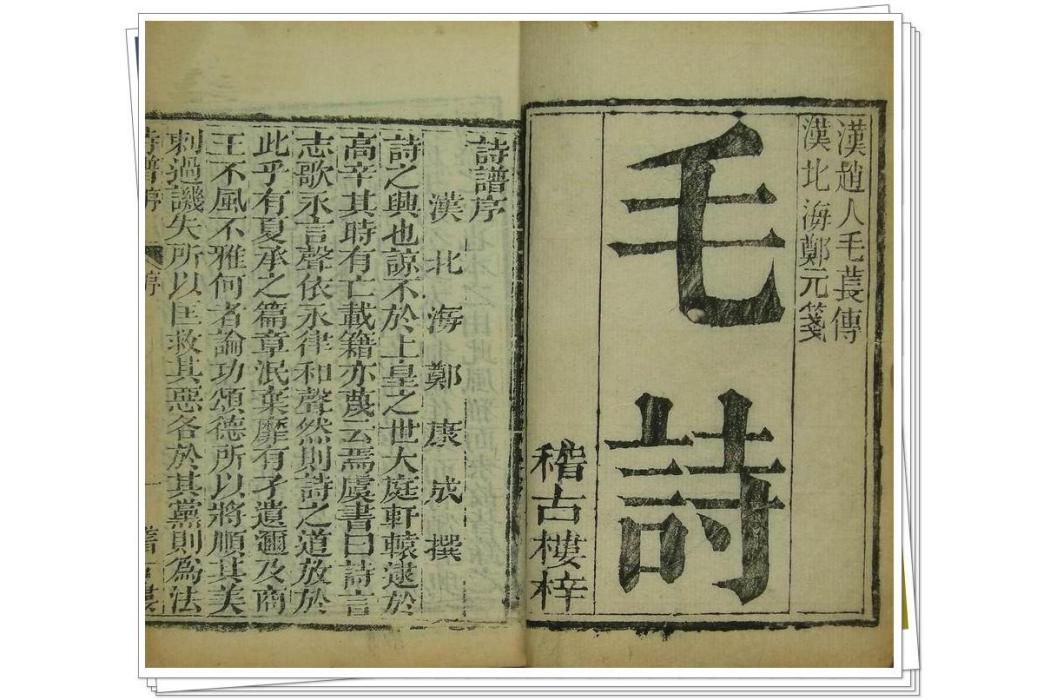 漢趙人毛萇傳
漢北海鄭元箋
毛詩
稽古樓梓
詩譜序
漢北海鄭康成撰
詩之興也諒不於上皇之世大庭軒轅逮於
高辛其時有亡載籍亦蔑云焉虞書曰詩言
志歌永言聲依永律和聲然則詩之道放於
此乎有夏承之篇章泯棄靡有孑遺邇及商
王不風不雅何者論功頌德所以將順其美
刺過譏失所以匡救其惡各於其黨則為法
詩譜序